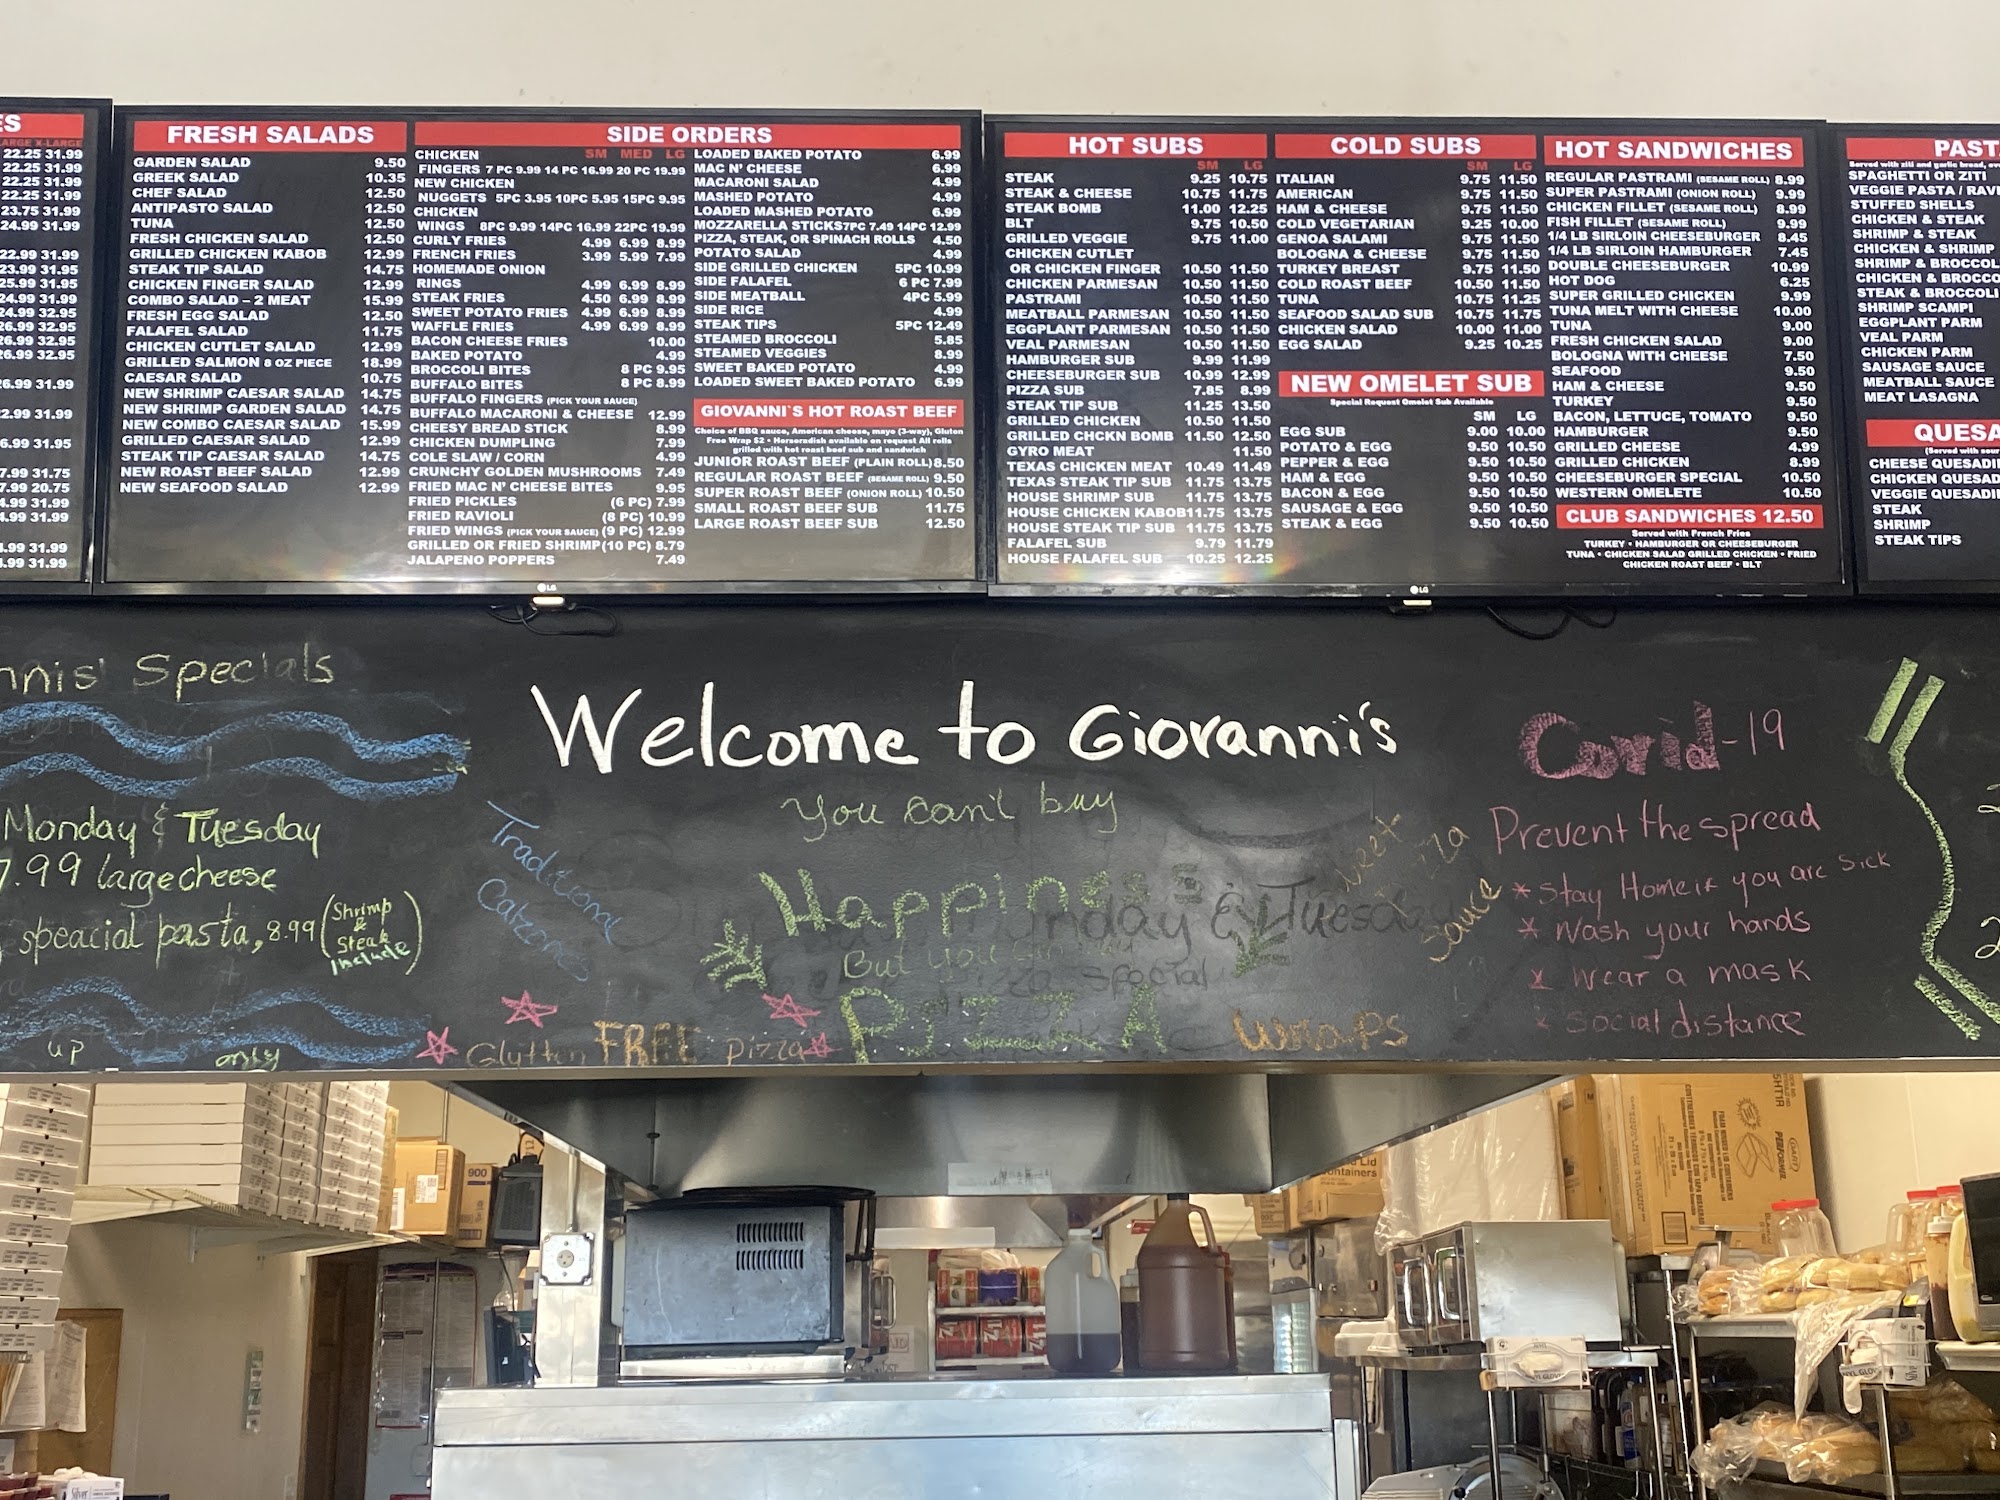 ES
LARGE X-LARGE
22.25 31.99
22.25 31.99
22.25 31.99
22.25 31.99
23.75 31.99
24.99 31.99
22.99 31.99
23.99 31.95
25.99 31.95
24.99 31.99
24.99 32.95
26.99 32.95
26.99 32.95
26.99 31.99
22.99 31.99
26.99 31.95
FRESH SALADS
GARDEN SALAD 9.50
GREEK SALAD 10.35
CHEF SALAD 12.50
ANTIPASTO SALAD 12.50
TUNA 12.50
FRESH CHICKEN SALAD 12.50
GRILLED CHICKEN KABOB 12.99
STEAK TIP SALAD 14.75
CHICKEN FINGER SALAD 12.99
COMBO SALAD – 2 MEAT 15.99
FRESH EGG SALAD 12.50
FALAFEL SALAD 11.75
CHICKEN CUTLET SALAD 12.99
GRILLED SALMON 8 OZ PIECE 18.99
CAESAR SALAD 10.75
NEW SHRIMP CAESAR SALAD 14.75
NEW SHRIMP GARDEN SALAD 14.75
NEW COMBO CAESAR SALAD 15.99
GRILLED CAESAR SALAD 12.99
STEAK TIP CAESAR SALAD 14.75
NEW ROAST BEEF SALAD 12.99
NEW SEAFOOD SALAD 12.99
SIDE ORDERS
SM MED LG
CHICKEN
FINGERS 7 PC 9.99 14 PC 16.99 20 PC 19.99
NEW CHICKEN
NUGGETS 5PC 3.95 10PC 5.95 15PC 9.95
CHICKEN
WINGS 8PC 9.99 14PC 16.99 22PC 19.99
CURLY FRIES 4.99 6.99 8.99
FRENCH FRIES 3.99 5.99 7.99
HOMEMADE ONION
RINGS 4.99 6.99 8.99
STEAK FRIES 4.50 6.99 8.99
SWEET POTATO FRIES 4.99 6.99 8.99
WAFFLE FRIES 4.99 6.99 8.99
BACON CHEESE FRIES 10.00
BAKED POTATO 4.99
BROCCOLI BITES 8 PC 9.95
BUFFALO BITES 8 PC 8.99
BUFFALO FINGERS (PICK YOUR SAUCE)
BUFFALO MACARONI & CHEESE 12.99
CHEESY BREAD STICK 8.99
CHICKEN DUMPLING 7.99
COLE SLAW / CORN 4.99
CRUNCHY GOLDEN MUSHROOMS 7.49
FRIED MAC N' CHEESE BITES 9.95
FRIED PICKLES (6 PC) 7.99
FRIED RAVIOLI (8 PC) 10.99
FRIED WINGS (PICK YOUR SAUCE) (9 PC) 12.99
GRILLED OR FRIED SHRIMP (10 PC) 8.79
JALAPENO POPPERS 7.49
LOADED BAKED POTATO 6.99
MAC N' CHEESE 6.99
MACARONI SALAD 4.99
MASHED POTATO 4.99
LOADED MASHED POTATO 6.99
MOZZARELLA STICKS 7PC 7.49 14PC 12.99
PIZZA, STEAK, OR SPINACH ROLLS 4.50
POTATO SALAD 4.99
SIDE GRILLED CHICKEN 5PC 10.99
SIDE FALAFEL 6 PC 7.99
SIDE MEATBALL 4PC 5.99
SIDE RICE 4.99
STEAK TIPS 5PC 12.49
STEAMED BROCCOLI 5.85
STEAMED VEGGIES 8.99
SWEET BAKED POTATO 4.99
LOADED SWEET BAKED POTATO 6.99
GIOVANNI`S HOT ROAST BEEF
Choice of BBQ sauce, American cheese, mayo (3-way), Gluten
Free Wrap $2 • Horseradish available on request All rolls
grilled with hot roast beef sub and sandwich
JUNIOR ROAST BEEF (PLAIN ROLL) 8.50
REGULAR ROAST BEEF (SESAME ROLL) 9.50
SUPER ROAST BEEF (ONION ROLL) 10.50
SMALL ROAST BEEF SUB 11.75
LARGE ROAST BEEF SUB 12.50
LG
HOT SUBS
SM LG
STEAK 9.25 10.75
STEAK & CHEESE 10.75 11.75
STEAK BOMB 11.00 12.25
BLT 9.75 10.50
GRILLED VEGGIE 9.75 11.00
CHICKEN CUTLET
OR CHICKEN FINGER 10.50 11.50
CHICKEN PARMESAN 10.50 11.50
PASTRAMI 10.50 11.50
MEATBALL PARMESAN 10.50 11.50
EGGPLANT PARMESAN 10.50 11.50
VEAL PARMESAN 10.50 11.50
HAMBURGER SUB 9.99 11.99
CHEESEBURGER SUB 10.99 12.99
PIZZA SUB 7.85 8.99
STEAK TIP SUB 11.25 13.50
GRILLED CHICKEN 10.50 11.50
GRILLED CHCKN BOMB 11.50 12.50
GYRO MEAT 11.50
TEXAS CHICKEN MEAT 10.49 11.49
TEXAS STEAK TIP SUB 11.75 13.75
HOUSE SHRIMP SUB 11.75 13.75
HOUSE CHICKEN KABOB 11.75 13.75
HOUSE STEAK TIP SUB 11.75 13.75
FALAFEL SUB 9.79 11.79
HOUSE FALAFEL SUB 10.25 12.25
COLD SUBS
SM LG
ITALIAN 9.75 11.50
AMERICAN 9.75 11.50
HAM & CHEESE 9.75 11.50
COLD VEGETARIAN 9.25 10.00
GENOA SALAMI 9.75 11.50
BOLOGNA & CHEESE 9.75 11.50
TURKEY BREAST 9.75 11.50
COLD ROAST BEEF 10.50 11.50
TUNA 10.75 11.25
SEAFOOD SALAD SUB 10.75 11.75
CHICKEN SALAD 10.00 11.00
EGG SALAD 9.25 10.25
NEW OMELET SUB
Special Request Omelet Sub Available
SM LG
EGG SUB 9.00 10.00
POTATO & EGG 9.50 10.50
PEPPER & EGG 9.50 10.50
HAM & EGG 9.50 10.50
BACON & EGG 9.50 10.50
SAUSAGE & EGG 9.50 10.50
STEAK & EGG 9.50 10.50
HOT SANDWICHES
REGULAR PASTRAMI (SESAME ROLL) 8.99
SUPER PASTRAMI (ONION ROLL) 9.99
CHICKEN FILLET (SESAME ROLL) 8.99
FISH FILLET (SESAME ROLL) 9.99
1/4 LB SIRLOIN CHEESEBURGER 8.45
1/4 LB SIRLOIN HAMBURGER 7.45
DOUBLE CHEESEBURGER 10.99
HOT DOG 6.25
SUPER GRILLED CHICKEN 9.99
TUNA MELT WITH CHEESE 10.00
TUNA 9.00
FRESH CHICKEN SALAD 9.00
BOLOGNA WITH CHEESE 7.50
SEAFOOD 9.50
HAM & CHEESE 9.50
TURKEY 9.50
BACON, LETTUCE, TOMATO 9.50
HAMBURGER 9.50
GRILLED CHEESE 4.99
GRILLED CHICKEN 8.99
CHEESEBURGER SPECIAL 10.50
WESTERN OMELETE 10.50
CLUB SANDWICHES 12.50
Served with French Fries
TURKEY • HAMBURGER OR CHEESEBURGER
TUNA • CHICKEN SALAD GRILLED CHICKEN • FRIED
CHICKEN ROAST BEEF • BLT
LG
PASTA
Served with ziti and garlic bread,
SPAGHETTI OR ZITI
VEGGIE PASTA / RAVI
STUFFED SHELLS
CHICKEN & STEAK
SHRIMP & STEAK
CHICKEN & SHRIMP
SHRIMP & BROCCOL
CHICKEN & BROCCO
STEAK & BROCCOLI
SHRIMP SCAMPI
EGGPLANT PARM
VEAL PARM
CHICKEN PARM
SAUSAGE SAUCE
MEATBALL SAUCE
MEAT LASAGNA
QUESA
(Served with sour
CHEESE QUESADI
CHICKEN QUESAD
VEGGIE QUESADI
STEAK
SHRIMP
STEAK TIPS
nnis' Specials
Monday & Tuesday
7.99 large cheese
speacial pasta, 8.99 (Shrimp
&
Steak
include)
up only
Welcome to Giovanni's
You can't buy
Happiness
But you
PIZZA
Traditional
Calzones
Glutten FREE pizza
Sauce
Wraps
Monday & Tuesday
Pizza special
Covid-19
Prevent the spread
* Stay Home if you are sick
* Wash your hands
* Wear a mask
* Social distance
900